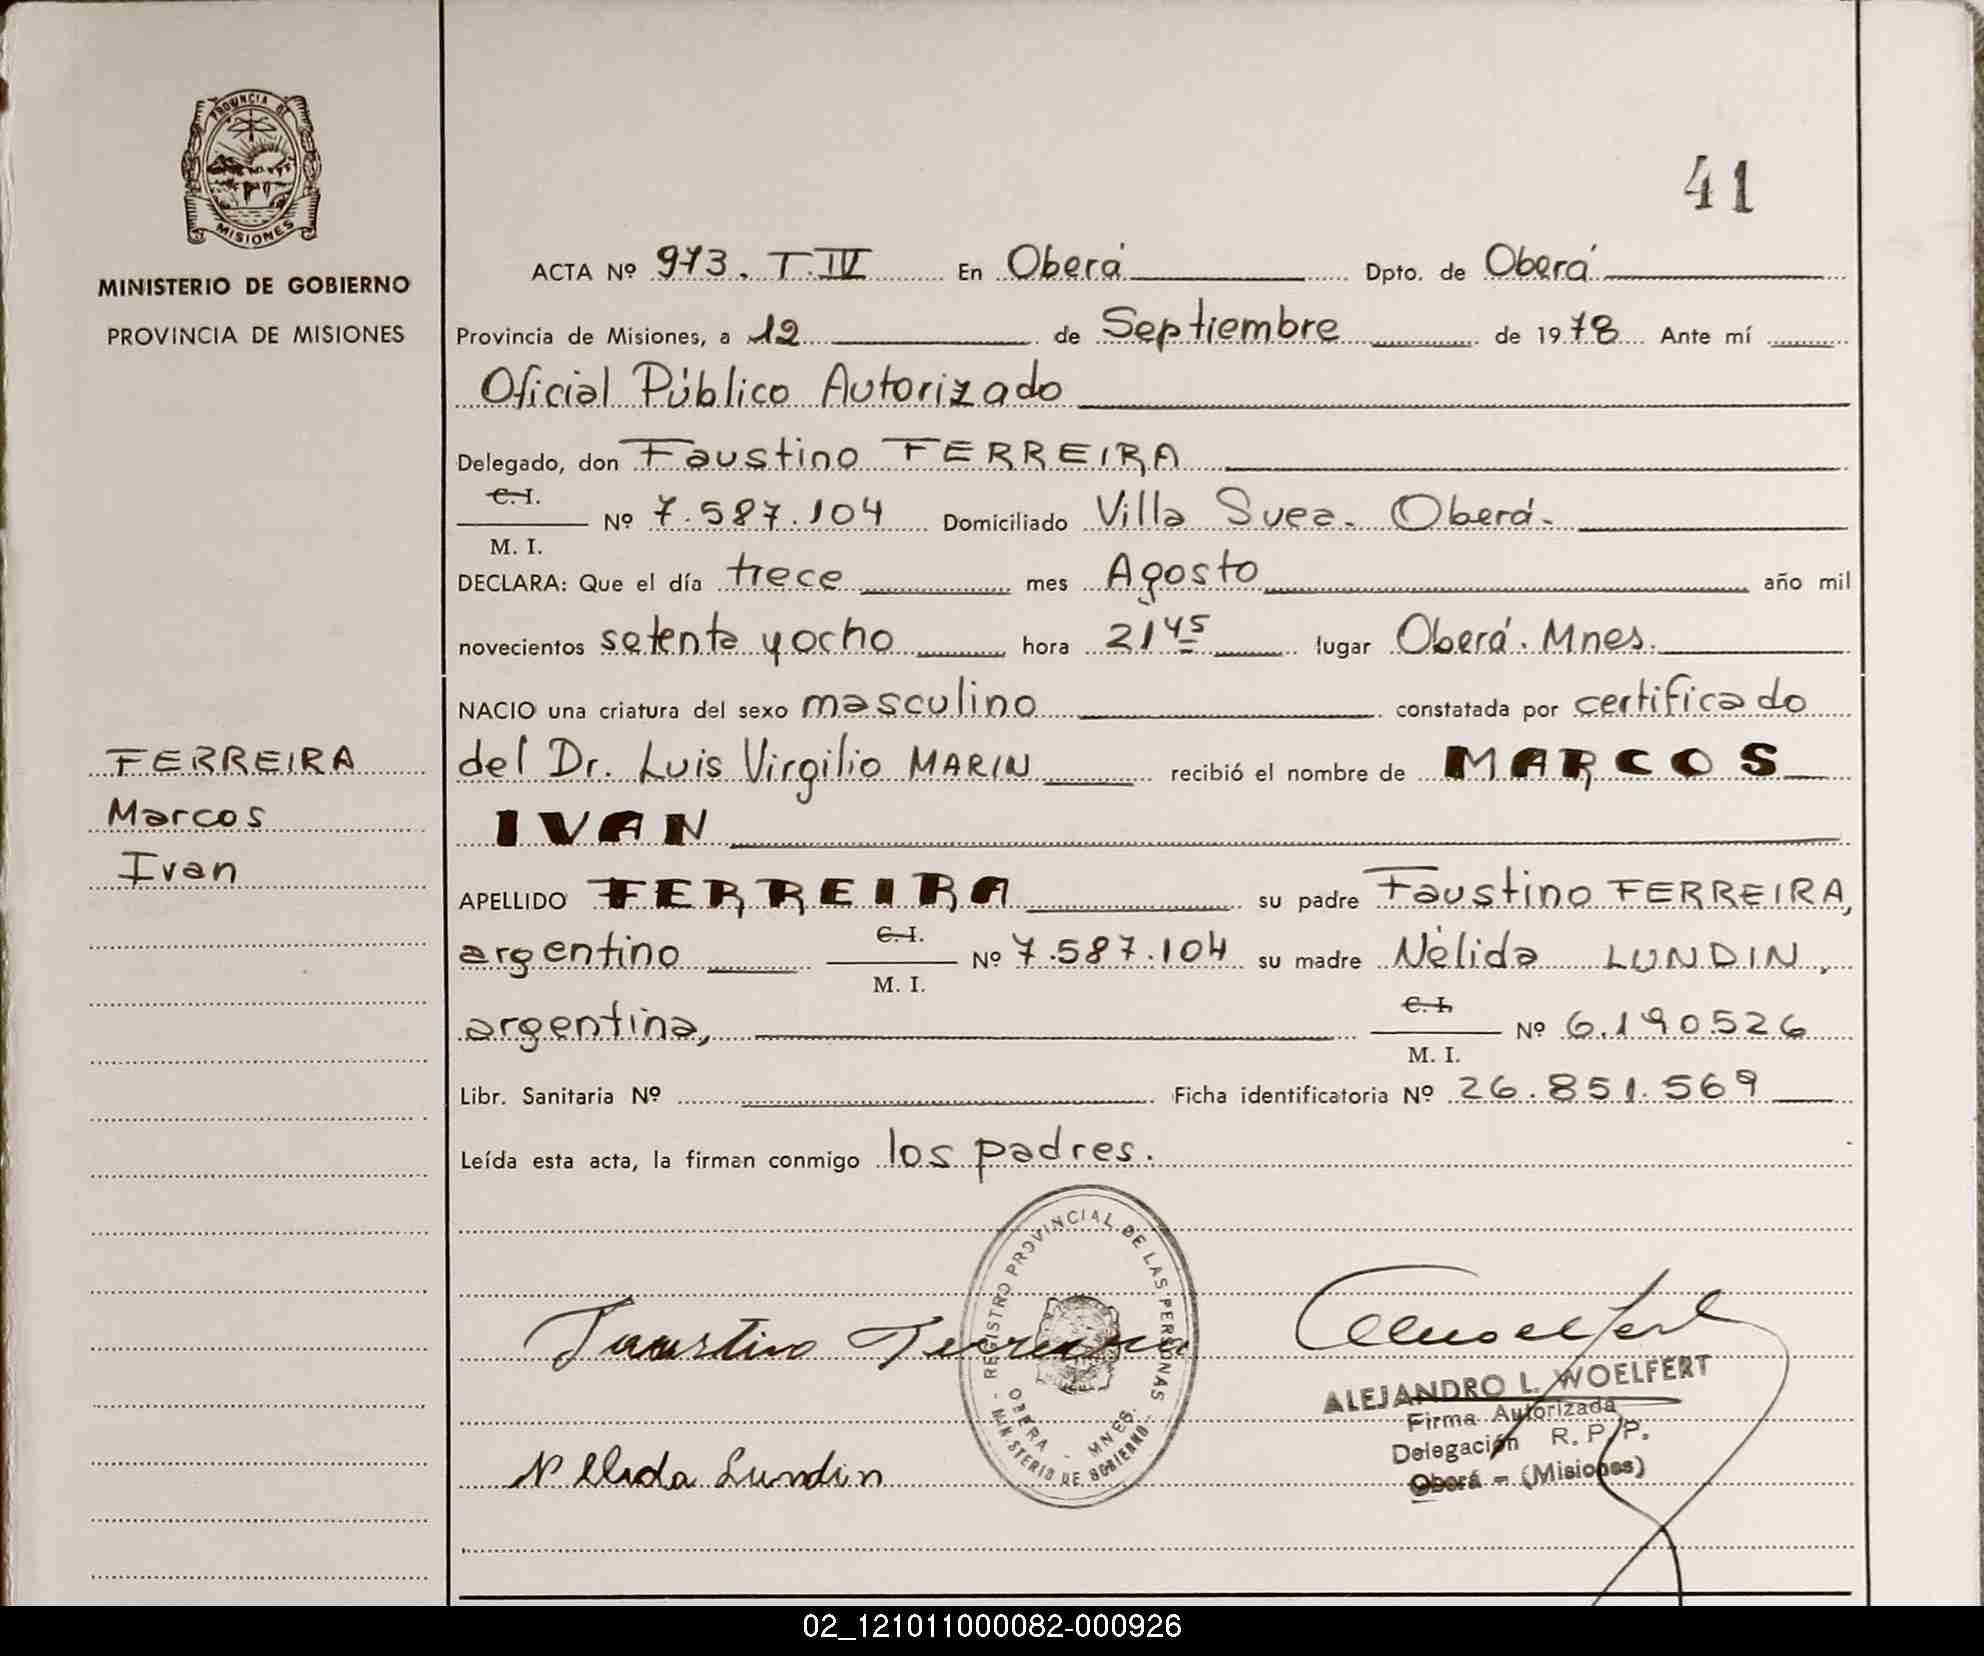 PROVINCIA DE
MISIONES
MINISTERIO DE GOBIERNO
PROVINCIA DE MISIONES
41
ACTA Nº 973. T.IV En Oberá Dpto. de Oberá
Provincia de Misiones, a 12 de Septiembre de 1978 Ante mí
Oficial Público Autorizado
Delegado, don Faustino FERREIRA
C. I.
Nº 7.587.104 Domiciliado Villa Suez. Oberá.
M. I.
DECLARA: Que el día trece mes Agosto año mil
novecientos setenta y ocho hora 21 45 lugar Oberá. Mnes.
NACIO una criatura del sexo masculino constatada por certificado
del Dr. Luis Virgilio MARIN recibió el nombre de MARCOS
IVAN
APELLIDO FERREIRA su padre Faustino FERREIRA,
argentino C. I. Nº 7.587.104 su madre Nélida LUNDIN,
M. I.
argentina, C. I. Nº 6.190.526
M. I.
Libr. Sanitaria Nº Ficha identificatoria Nº 26.851.569
Leída esta acta, la firman conmigo los padres.
FERREIRA
Marcos
Ivan
REGISTRO PROVINCIAL DE LAS PERSONAS
OBERA - MNES.
MINISTERIO DE GOBIERNO
Faustino Ferreira
Nelida Lundin
ALEJANDRO L. WOELFERT
Firma Autorizada
Delegación R. P. P.
Oberá - (Misiones)
02_121011000082-000926